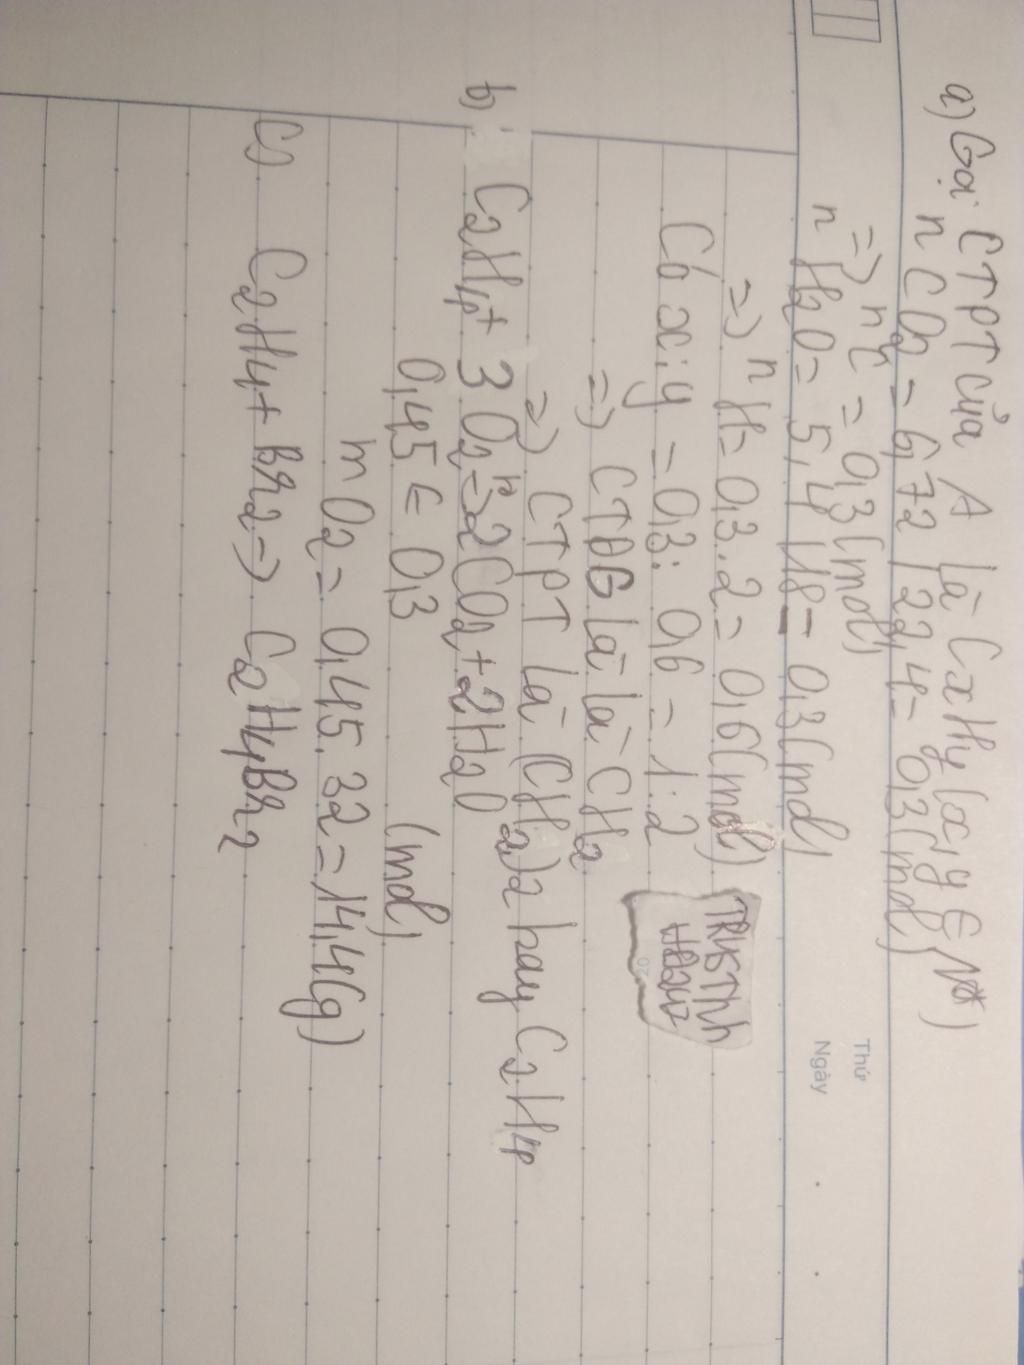 Thứ
Ngày
a) Gọi CTPT của A là CxHy (x,y ∈ N*)
nCO2 = 6,72 / 22,4 = 0,3 (mol)
=) nC = 0,3 (mol)
nH2O = 5,4 / 18 = 0,3 (mol)
=) nH = 0,3 . 2 = 0,6 (mol)
Có x : y = 0,3 : 0,6 = 1 : 2
=) CTĐG là là CH2
=) CTPT là (CH2)2 hay C2H4
b) C2H4 + 3O2 => 2CO2 + 2H2O
0,45 ← 0,3 (mol)
mO2 = 0,45 . 32 = 14,4 (g)
c) C2H4 + Br2 => C2H4Br2